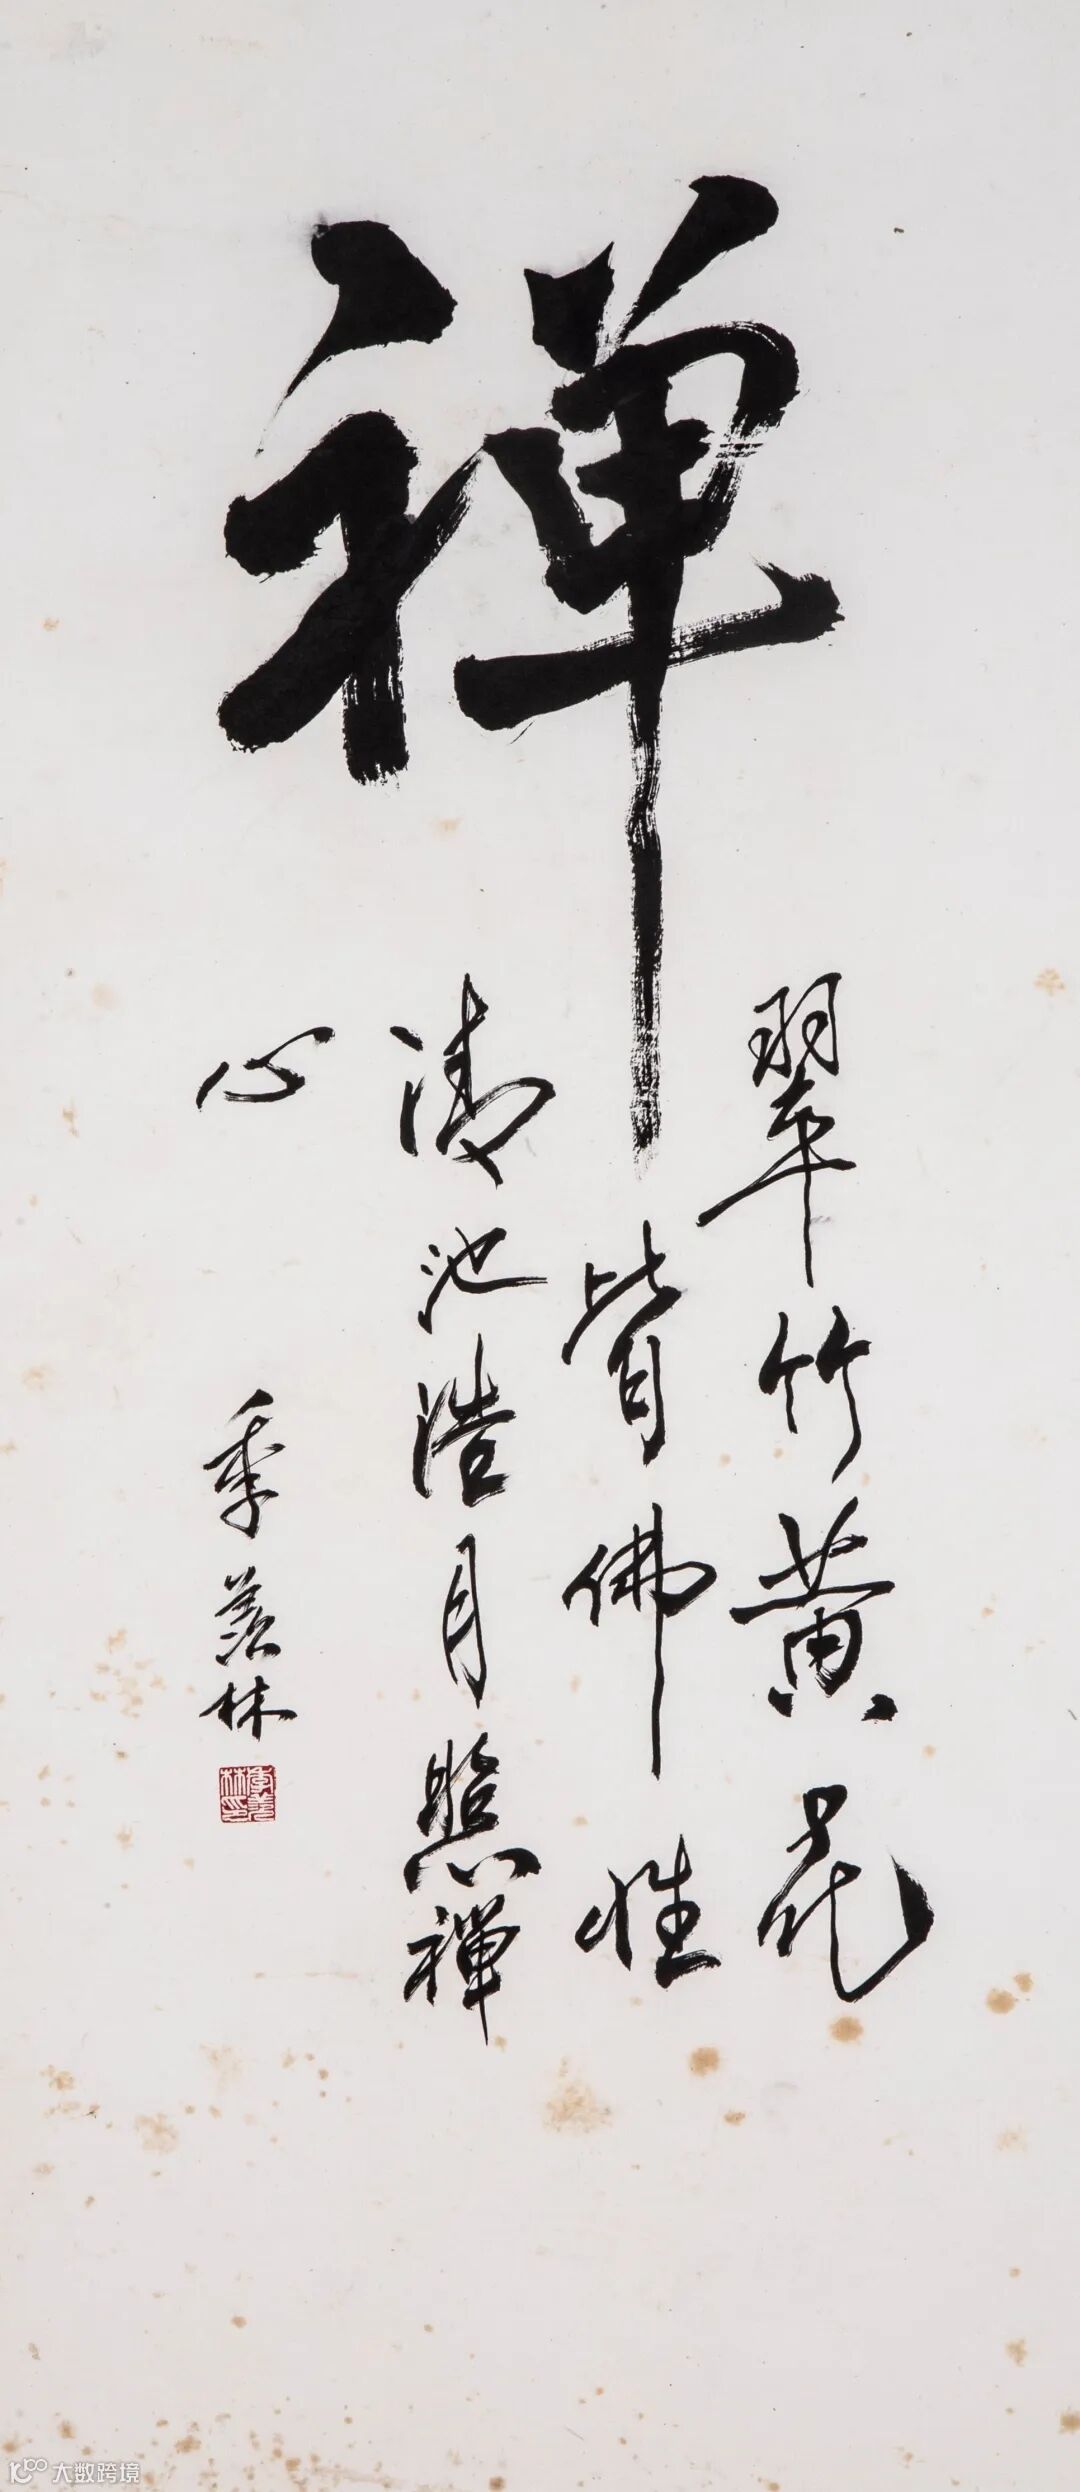 禅
翠竹黄花
皆佛性
清池浩月照禪
心
季羡林
季羡林印
大数跨境